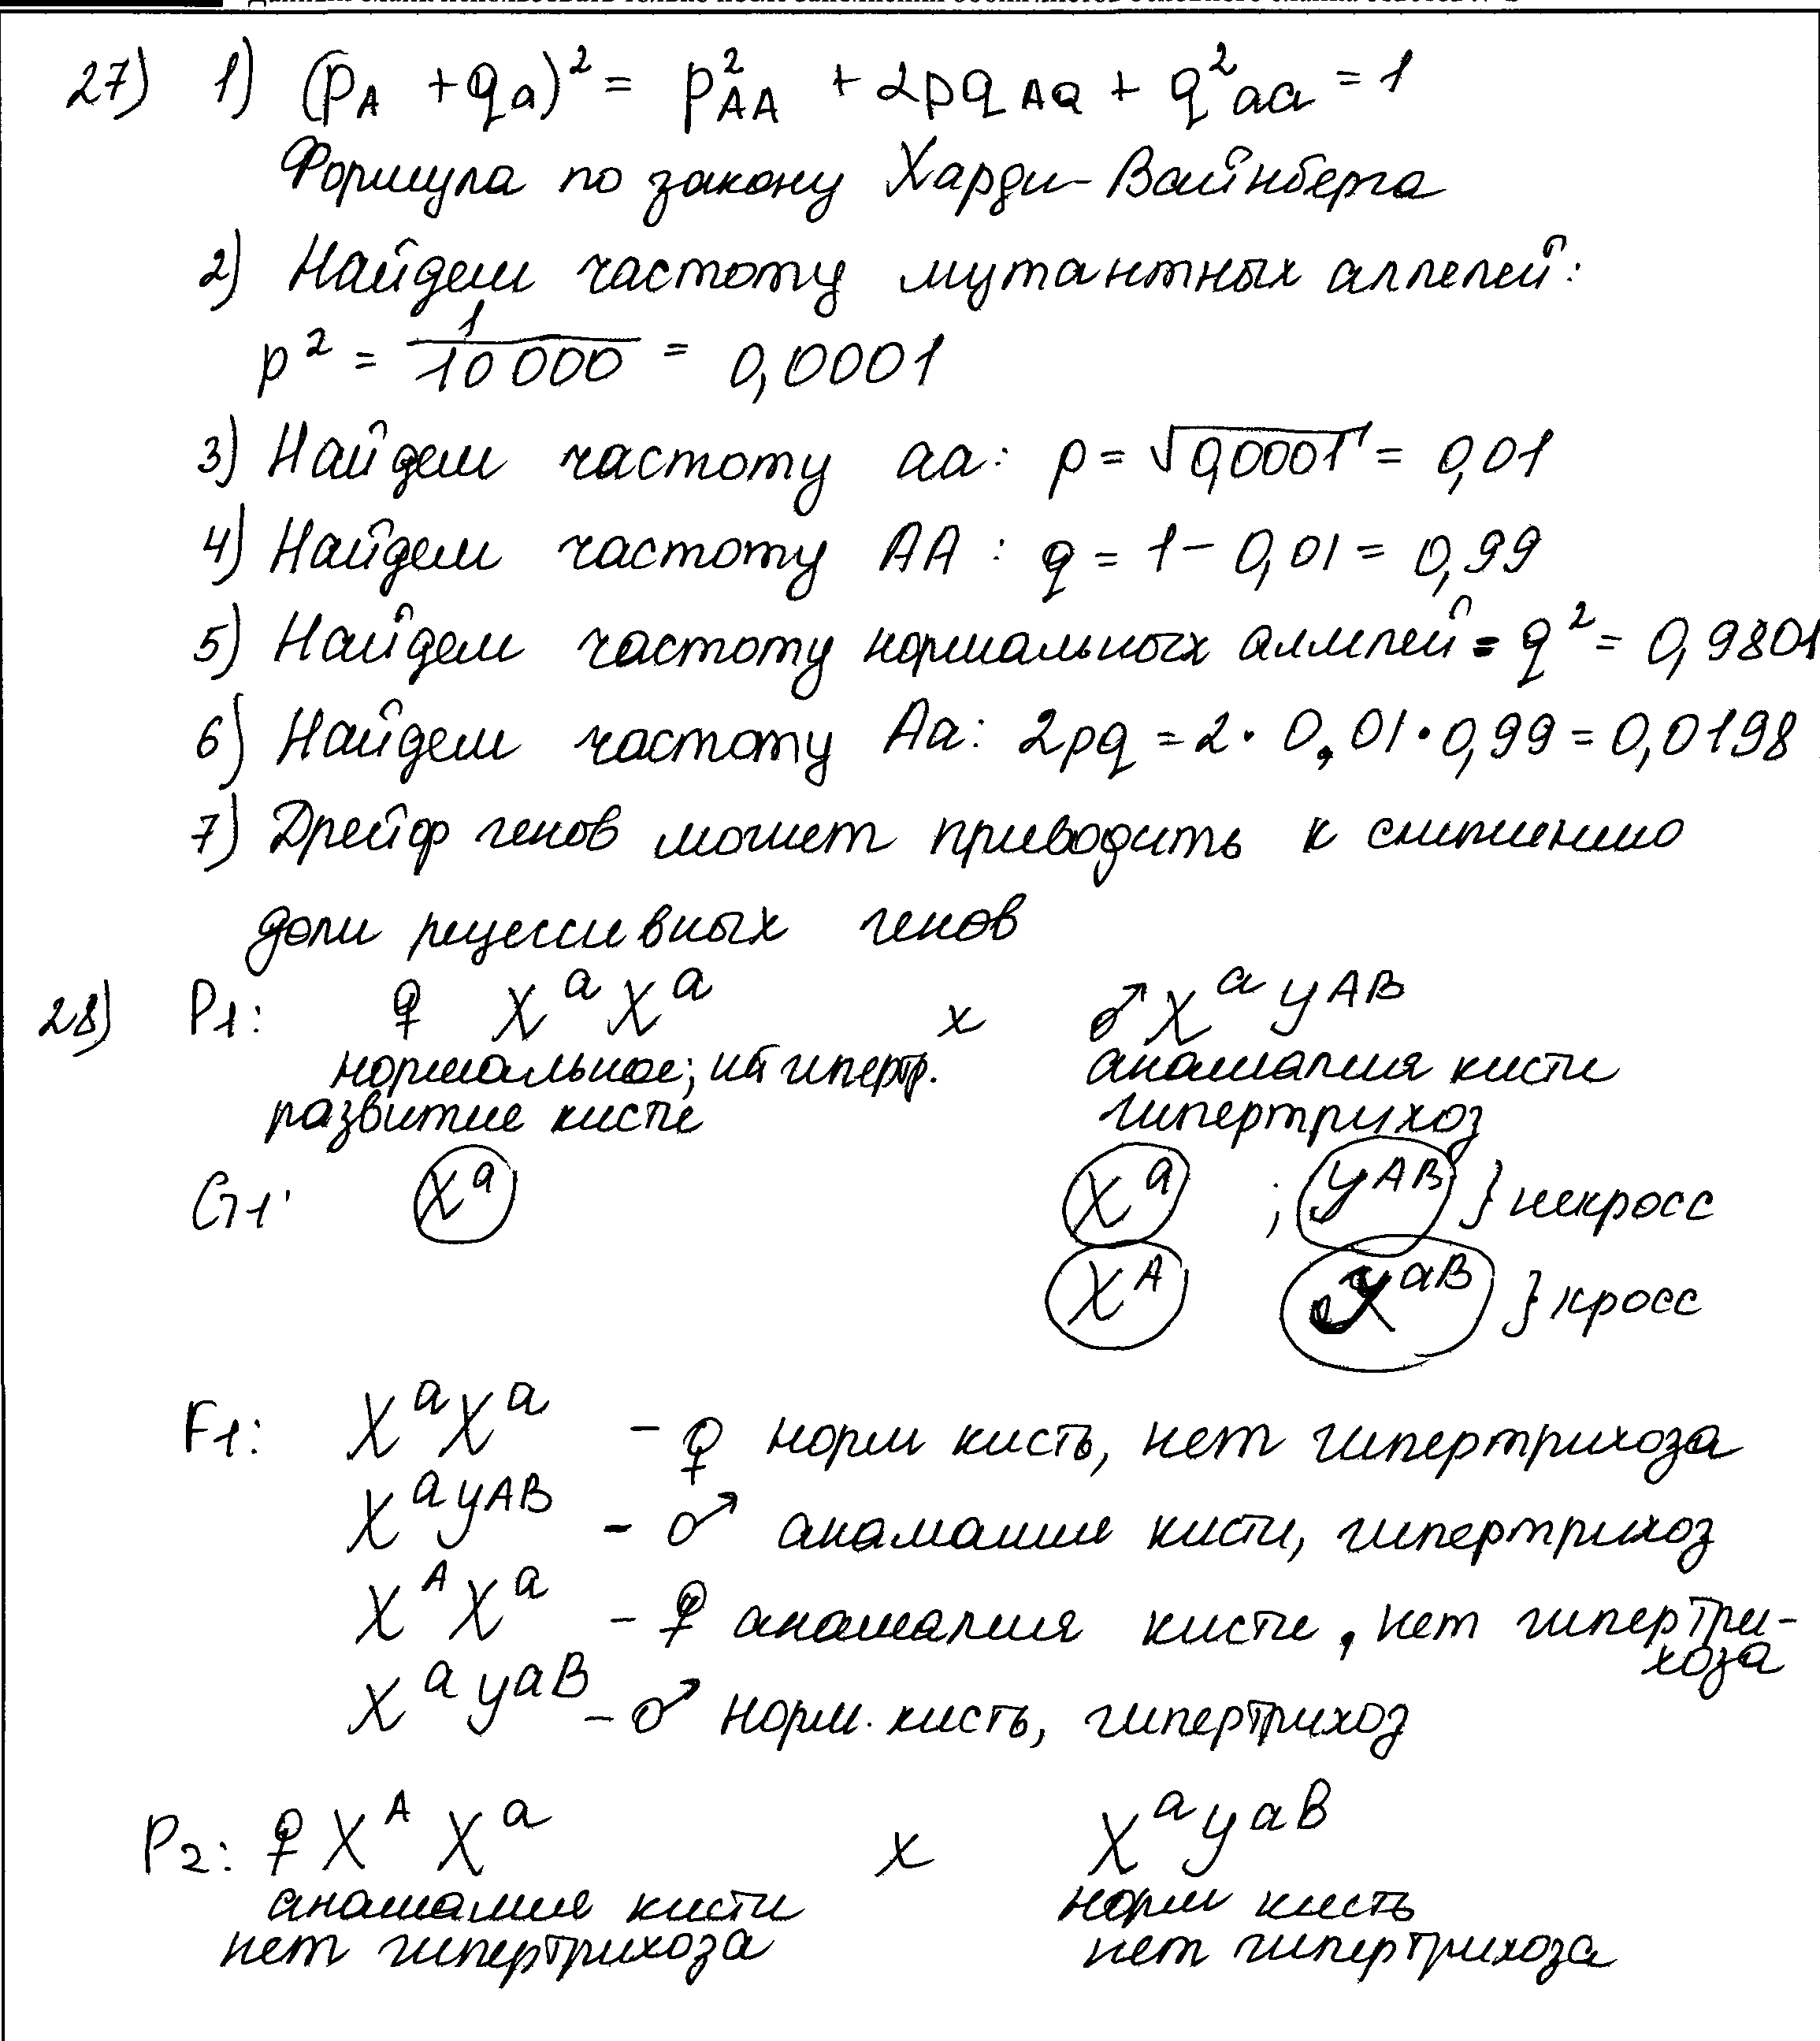 27) 1) (pA + qa)² = p²AA + 2pqAa + q²aa = 1
Формула по закону Харди-Вайнберга
2) Найдем частоту мутантных аллелей:
p² = 1/10 000 = 0,0001
3) Найдем частоту aa: p = √0,0001 = 0,01
4) Найдем частоту AA : q = 1 - 0,01 = 0,99
5) Найдем частоту нормальных аллелей = q² = 0,9801
6) Найдем частоту Aa: 2pq = 2 · 0,01 · 0,99 = 0,0198
7) Дрейф генов может приводить к снижению
доли рецессивных генов
28) P1: ♀ XᵃXᵃ x ♂ XᵃYᴬᴮ
нормальное; нет гипертр. аномалия кисти
развитие кисти гипертрихоз
G1: Xᵃ Xᵃ ; Yᴬᴮ } некросс
Xᴬ Yᵃᴮ } кросс
F1: XᵃXᵃ - ♀ норм кисть, нет гипертрихоза
XᵃYᴬᴮ - ♂ анамалия кисти, гипертрихоз
XᴬXᵃ - ♀ аномалия кисти, нет гипертри-
хоза
XᵃYᵃᴮ - ♂ норм. кисть, гипертрихоз
P2: ♀ XᴬXᵃ x XᵃYᵃᴮ
аномалия кисти норм кисть
нет гипертрихоза нет гипертрихоза